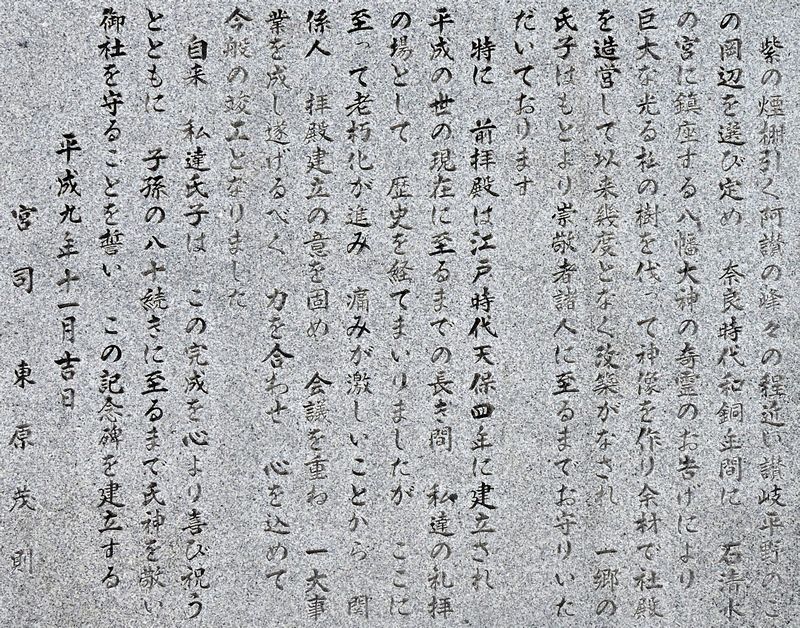 紫の煙棚引く阿讃の峰々の程近い讃岐平野のこ
の岡辺を選び定め　奈良時代和銅年間に　石清水
の宮に鎮座する八幡大神の奇霊のお告げにより
巨大な光る杜の樹を伐って神像を作り余材で社殿
を造営して以来幾度となく改築がなされ　一郷の
氏子はもとより崇敬者諸人に至るまでお守りいた
だいております
特に　前拝殿は江戸時代天保四年に建立され
平成の世の現在に至るまでの長き間　私達の礼拝
の場として　歴史を経てまいりましたが　ここに
至って老朽化が進み　痛みが激しいことから　関
係人　拝殿建立の意を固め　会議を重ね　一大事
業を成し遂げるべく　力を合わせ　心を込めて
今般の竣工となりました
自来　私達氏子は　この完成を心より喜び祝う
とともに　子孫の八十続きに至るまて氏神を敬い
御社を守ることを誓い　この記念碑を建立する
平成九年十一月吉日
宮司　東原茂則